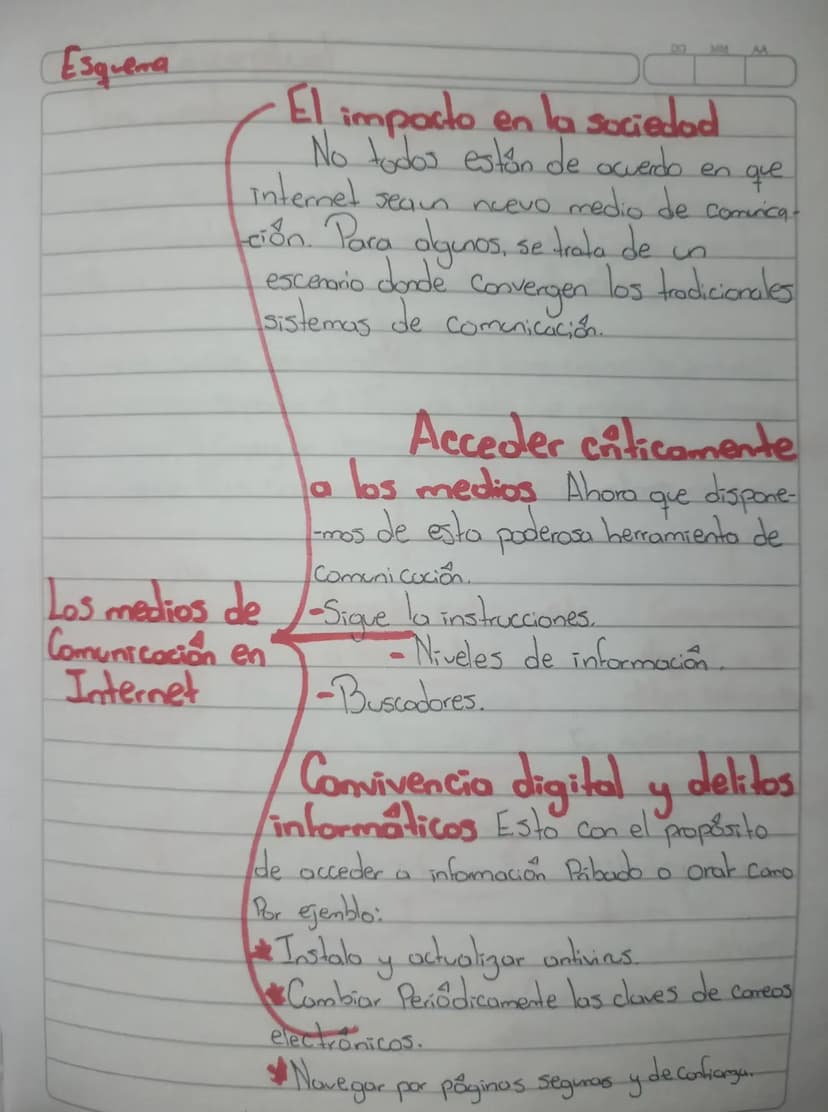 DD MM AA
Esquema
El impacto en la sociedad
No todos están de acuerdo en que
internet sea un nuevo medio de comunica-
-ción. Para algunos, se trata de un
escenario donde convergen los tradicionales
sistemas de comunicación.
Acceder críticamente
a los medios Ahora que dispone-
-mos de esta poderosa herramienta de
comunicación.
Los medios de
Comunicación en
Internet
-Sigue la instrucciones.
- Niveles de información.
-Buscadores.
Convivencia digital y delitos
informáticos Esto con el propósito
de acceder a información Pribado o como
Por ejemblo:
* Instalo y actualizar antivirus.
* Cambiar Periódicamente las claves de correos
electrónicos.
* Navegar por páginas seguras y de confianza.